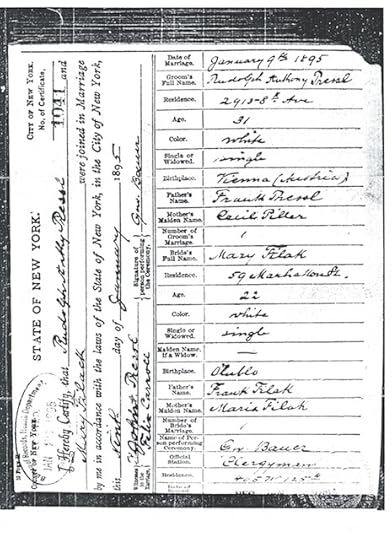 CITY OF NEW YORK.
No. of Certificate,
1041
STATE OF NEW YORK.
I Hereby Certify, that Rudolf Anthony Pressl and
Mary Filack were joined in Marriage
by me in accordance with the laws of the State of New York, in the City of New York,
this Ninth day of January 1895
Signature of person performing the Ceremony. Geo. Bauer
Witnesses to the Marriage,
Date of Marriage. January 9th 1895
Groom's Full Name. Rudolph Anthony Pressl
Residence. 2913-8th Ave
Age. 31
Color. white
Single or Widowed. single
Birthplace. Vienna (Austria)
Father's Name. Frank Pressl
Mother's Maiden Name.
Number of Groom's Marriage. 1
Bride's Full Name. Mary Filak
Residence. 59 Manhattan St.
Age. 22
Color. white
Single or Widowed. single
Maiden Name, if a Widow. —
Birthplace.
Father's Name. Frank Filak
Mother's Maiden Name. Maria Filak
Number of Bride's Marriage. 1
Name of Person performing Ceremony. Geo. Bauer
Official Station. Clergyman
Residence. W. 125th